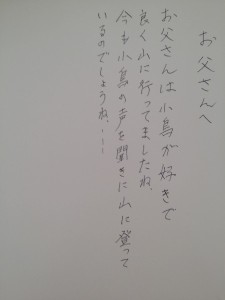 お父さんへ
お父さんは小鳥が好きで
良く山に行ってましたね、
今も小鳥の声を聞きに山に登って
いるのでしょうね、・・・